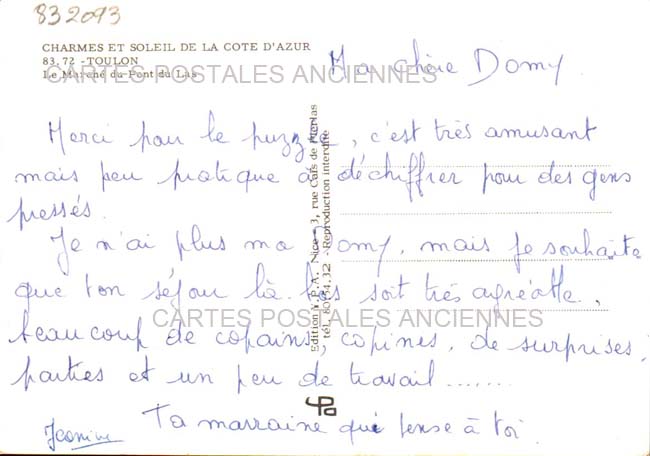 832093
CHARMES ET SOLEIL DE LA COTE D'AZUR
83.72 - TOULON
Le Marché du Pont du Las
CARTES POSTALES ANCIENNES
Ma chère Domy
Merci pour le puzzle, c'est très amusant
mais peu pratique à déchiffrer pour des gens
pressés.
Je n'ai plus ma Domy, mais je souhaite
que ton séjour là-bas soit très agréable,
beaucoup de copains, copines, de surprises,
parties et un peu de travail........
Ta marraine qui pense à toi.
Janine
CARTES POSTALES ANCIENNES
Edition Nice rue Cafs de
tél. - Reproduction interdite